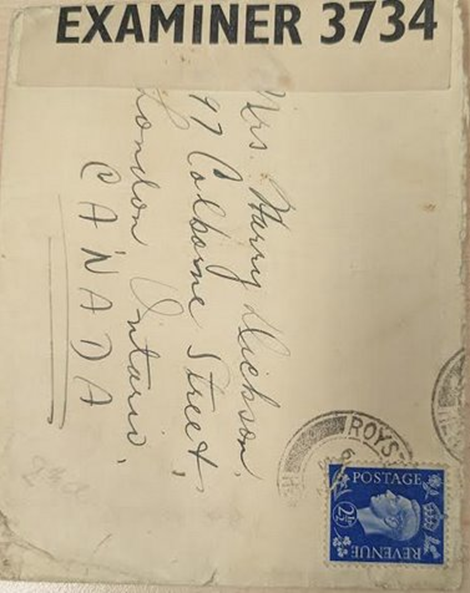 EXAMINER 3734
Mrs. Harry Dickson,
97 Colborne Street,
London Ontario,
CANADA
ROYS
6
POSTAGE
2½
REVENUE